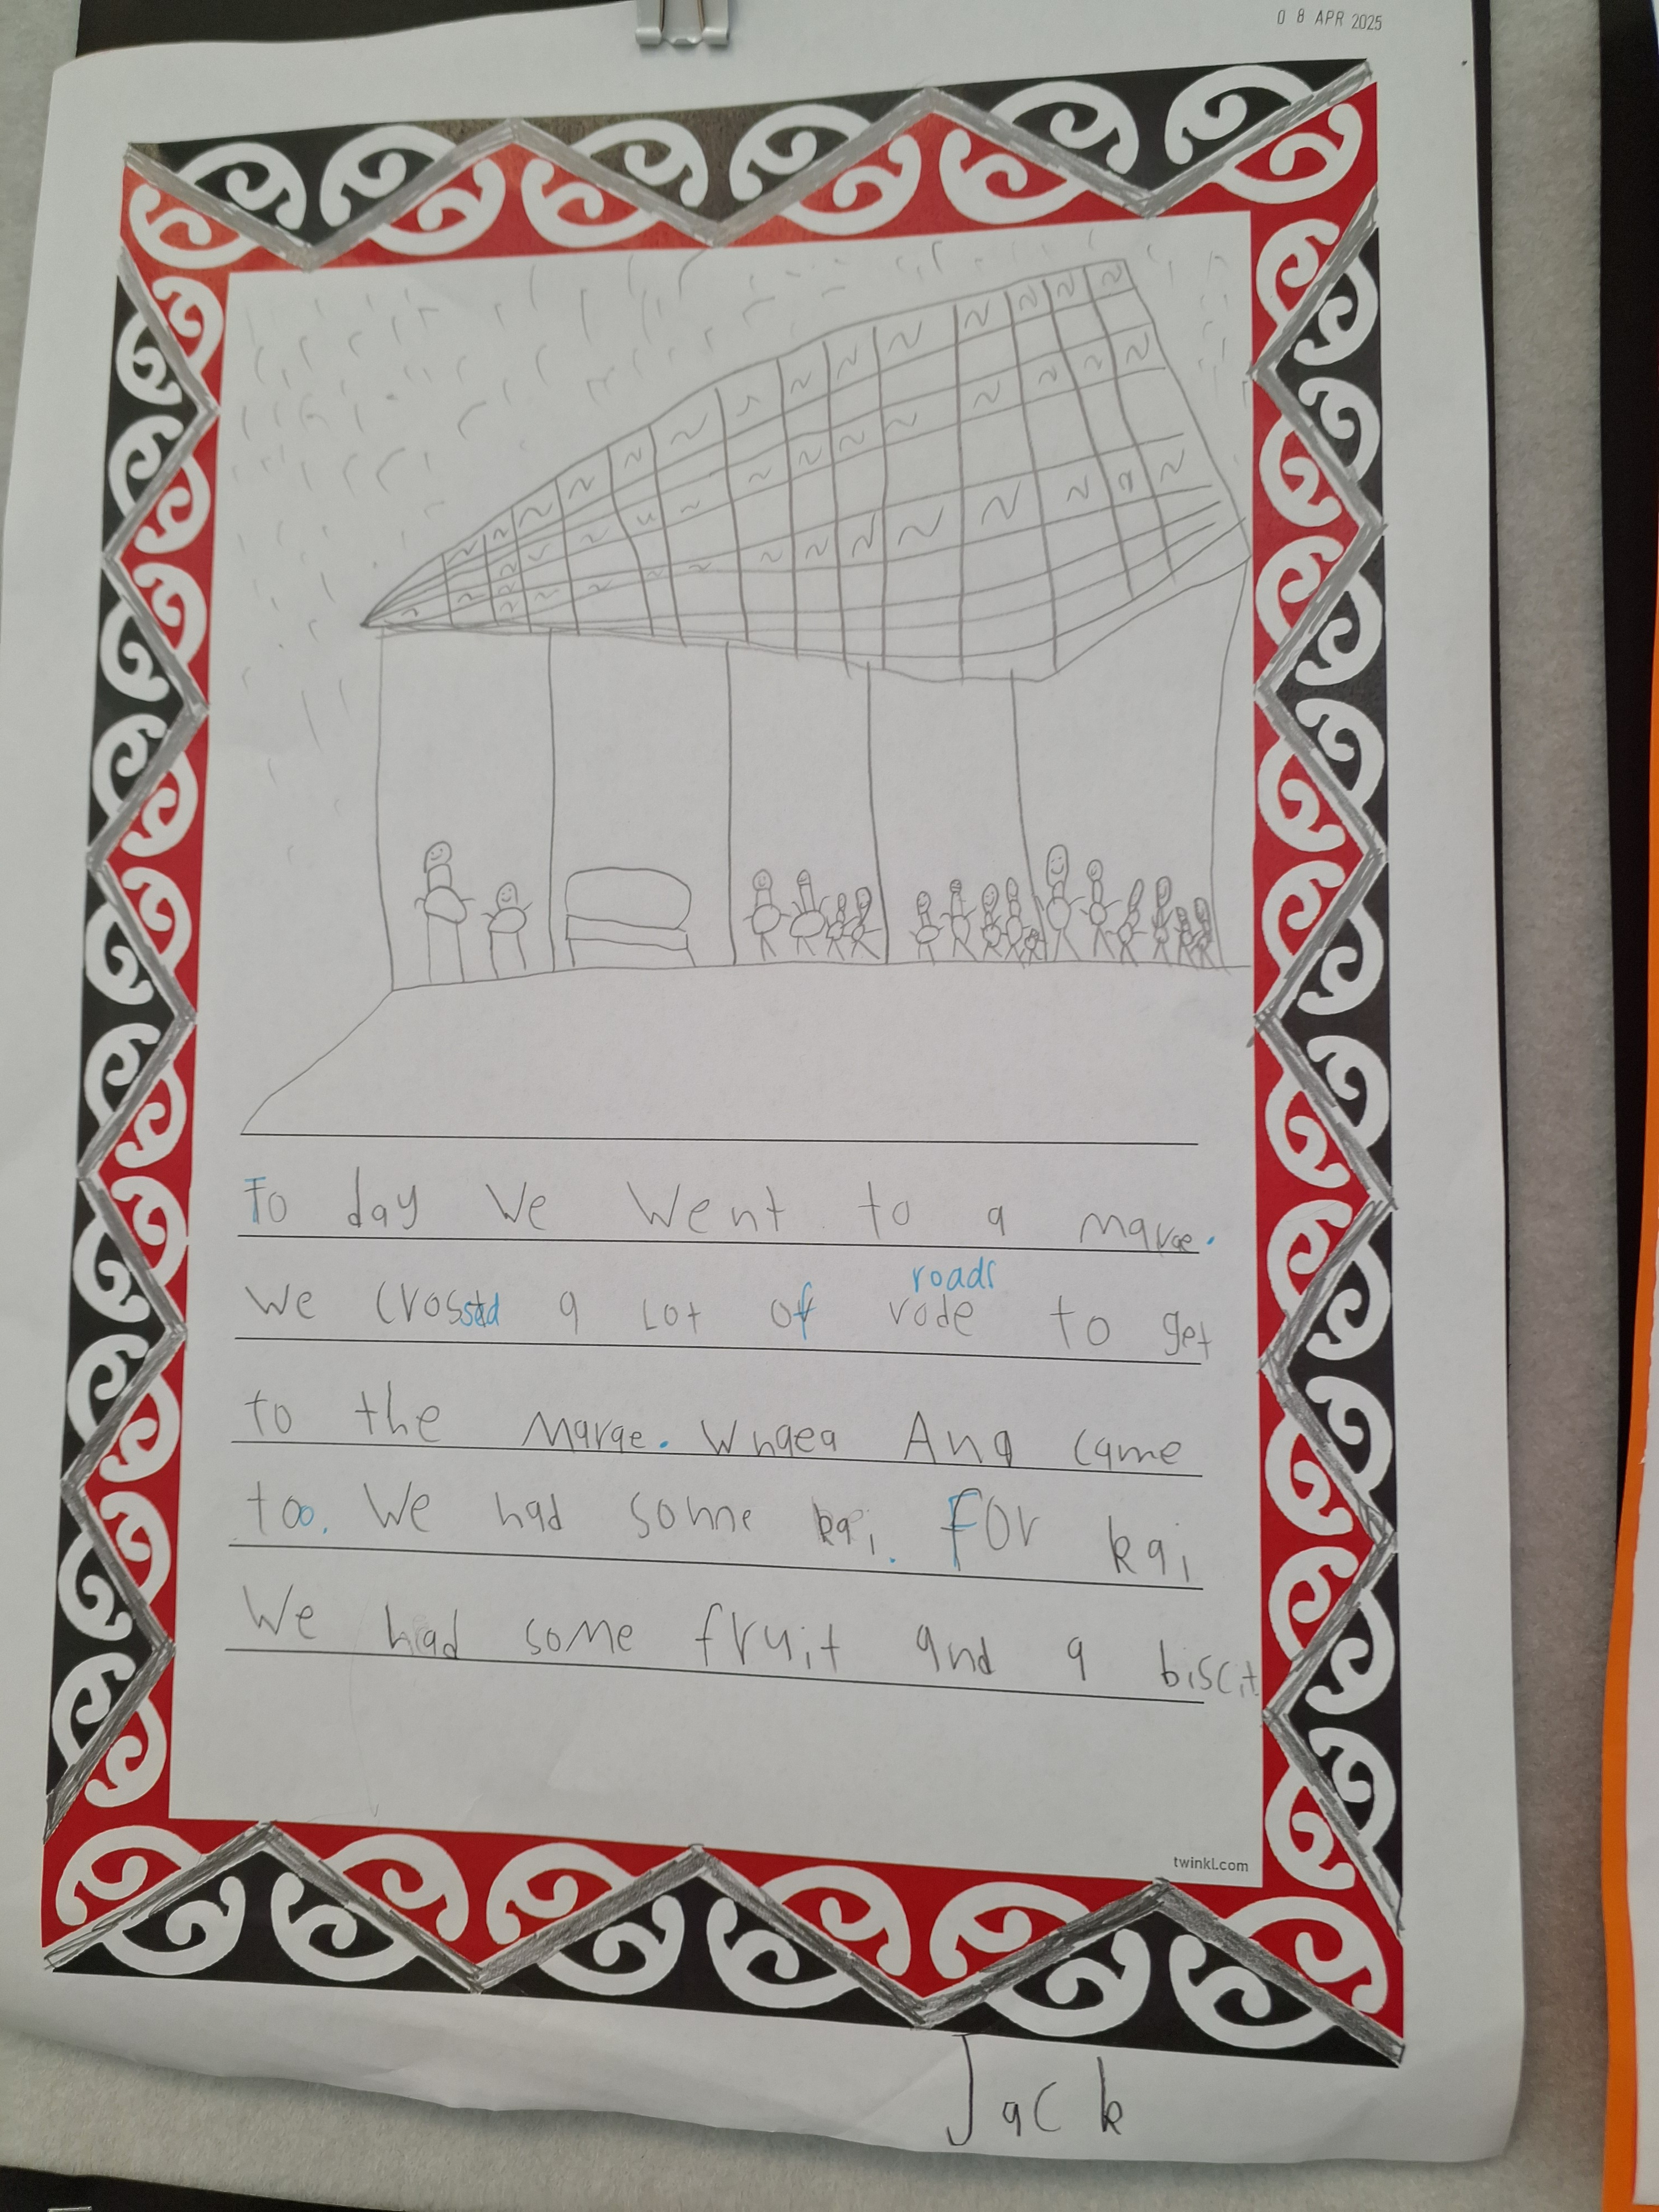 0 8 APR 2025
To day We Went to a marae.
We crossed a Lot of rode roads to get
to the marae. Whaea Ana came
too. We had some kai. For kai
We had some fruit and a biscit
twinkl.com
Jack